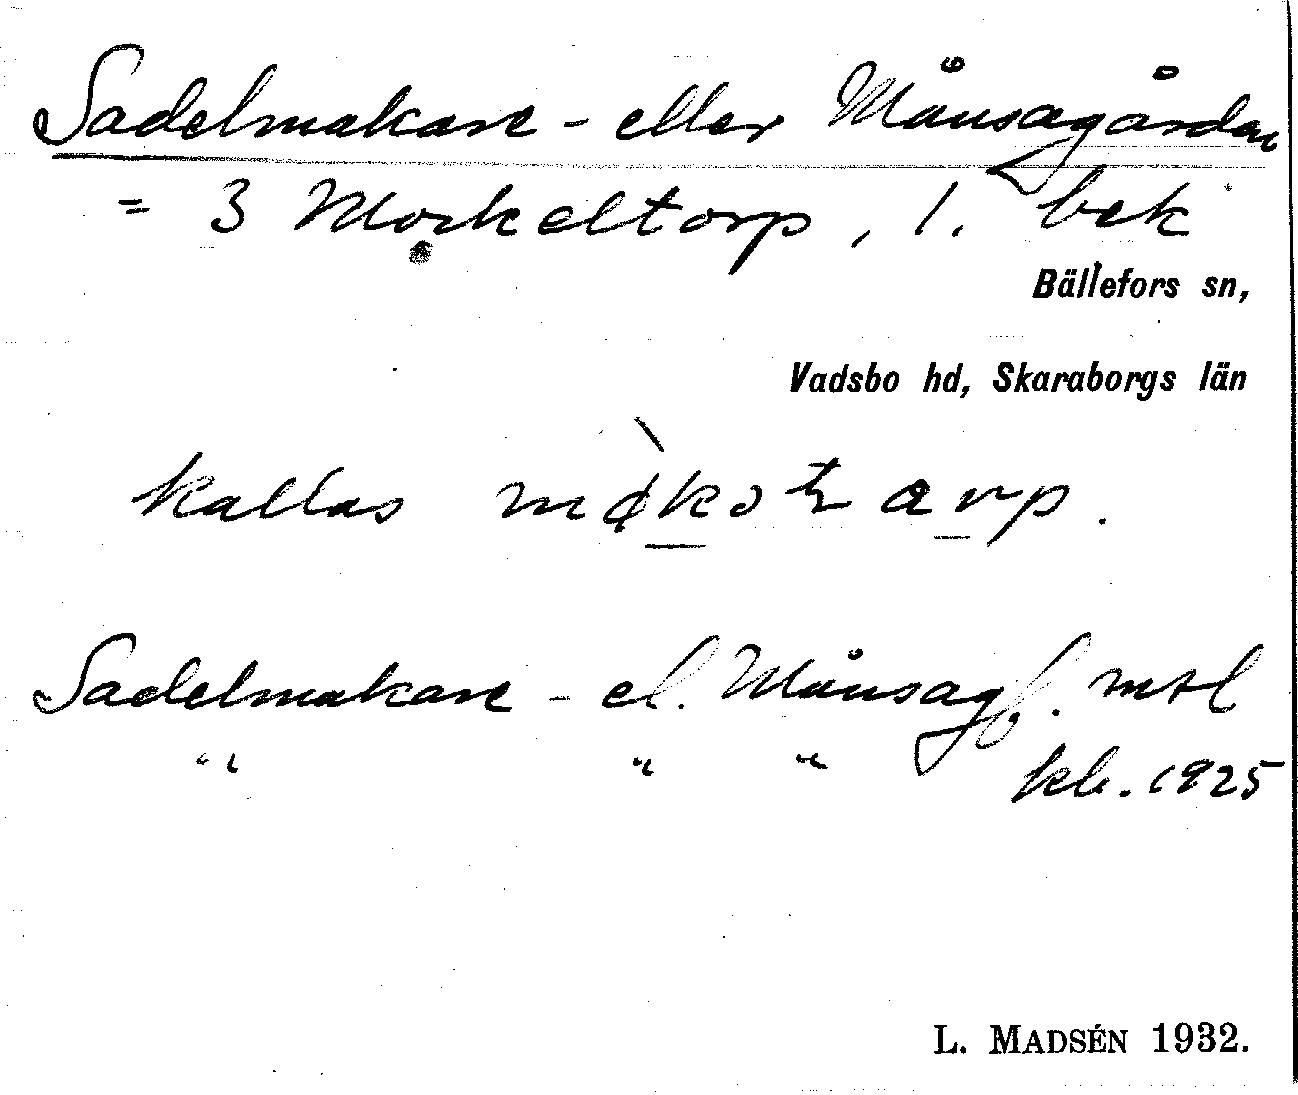 Sadelmakare- eller Månsagården
= 3 Morkeltorp, 1. bek
Bällefors sn,
Vadsbo hd, Skaraborgs län
kallas
Sadelmakare- el. Månsag. mtl
" " " kb. 1925
L. MADSÉN 1932.